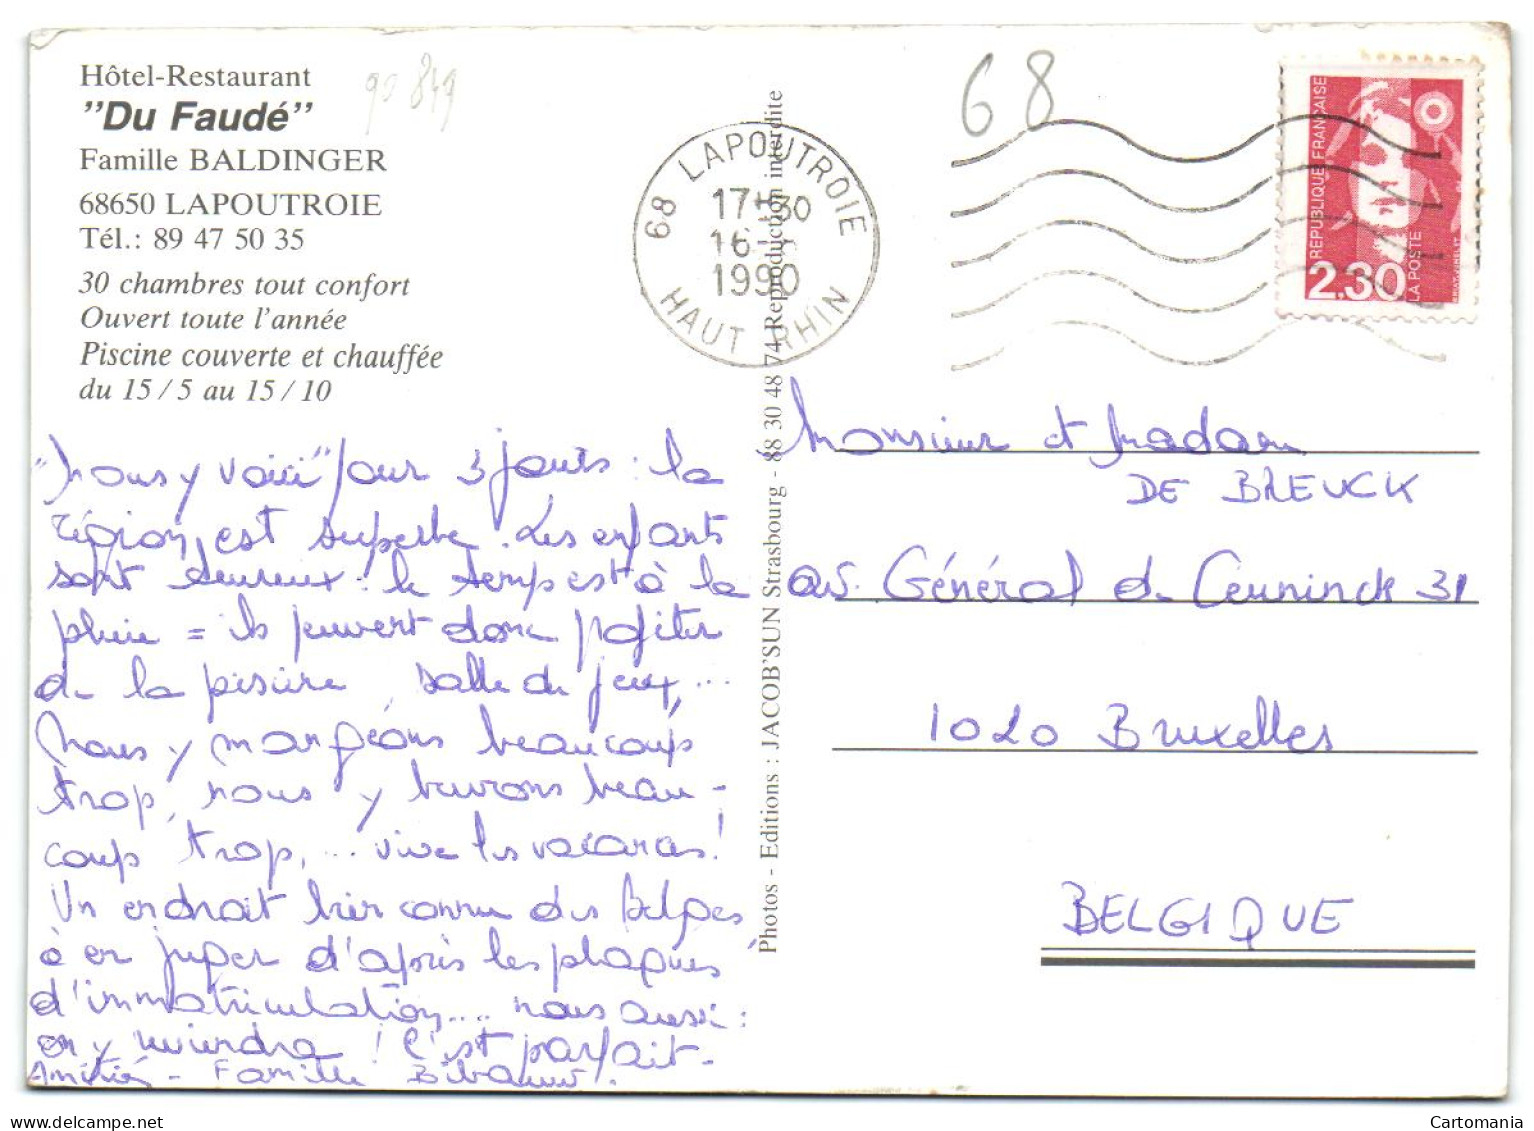 Hôtel-Restaurant
"Du Faudé"
Famille BALDINGER
68650 LAPOUTROIE
Tél.: 89 47 50 35
30 chambres tout confort
Ouvert toute l'année
Piscine couverte et chauffée
du 15 / 5 au 15 / 10
90 849
68
68 LAPOUTROIE
17H30
16-
1990
HAUT RHIN
REPUBLIQUE FRANÇAISE
2,30
LA POSTE
Photos - Editions : JACOB'SUN Strasbourg - 88 30 48 74 Reproduction interdite
"Nous y voici" pour 3 jours : la
région est superbe. Les enfants
sont heureux : le temps est à la
pluie = ils peuvent donc profiter
de la piscine, salle de jeux, ...
Nous y mangeons beaucoup
trop, nous y buvons beau-
coup trop, ... vive les vacances !
Un endroit bien connu des Belges,
à en juger d'après les plaques
d'immatriculation.... nous aussi :
on y reviendra ! C'est parfait -
Amitiés - Famille
Monsieur et Madame
DE BREUCK
av. Général de Ceuninck 31
1020 Bruxelles
BELGIQUE
www.delcampe.net
Cartomania